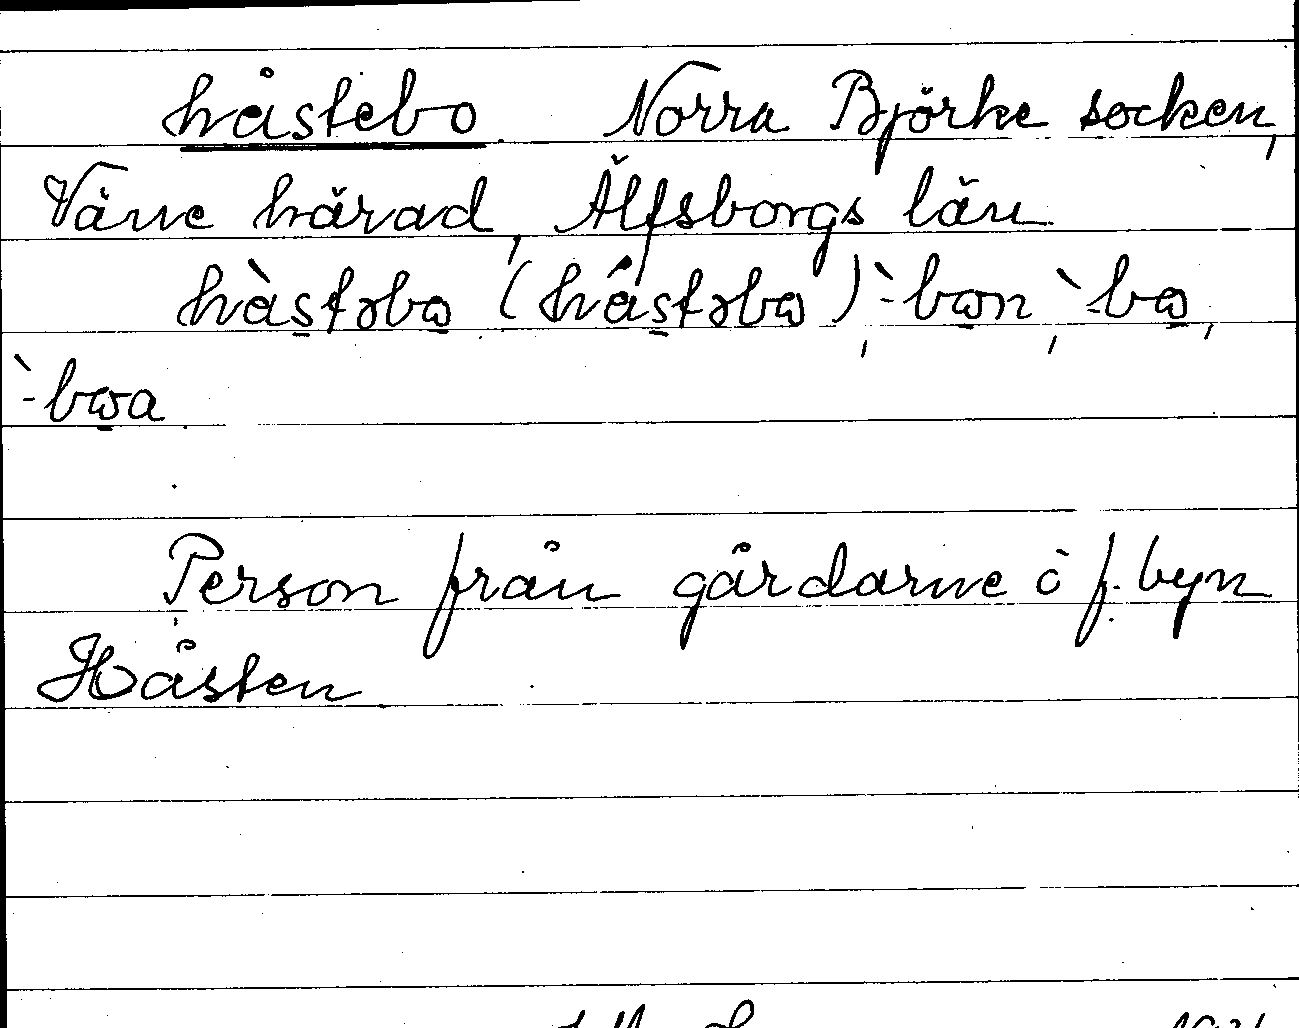 håstebo Norra Björke socken,
Väne härad, Älfsborgs län
hàstəbω (hástəbω), `-bωn, `-bω,
`-bωa
Person från gårdarne i f. byn
Håsten